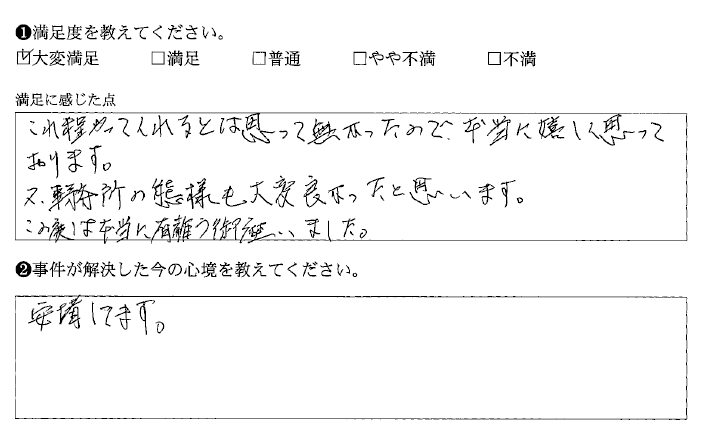 ❶満足度を教えてください。
☑大変満足 □満足 □普通 □やや不満 □不満
満足に感じた点
これ程やってくれるとは思って無かったので、本当に嬉しく思って
おります。
又、事務所の態様も大変良かったと思います。
この度は本当に有難う御座いました。
❷事件が解決した今の心境を教えてください。
安堵してます。